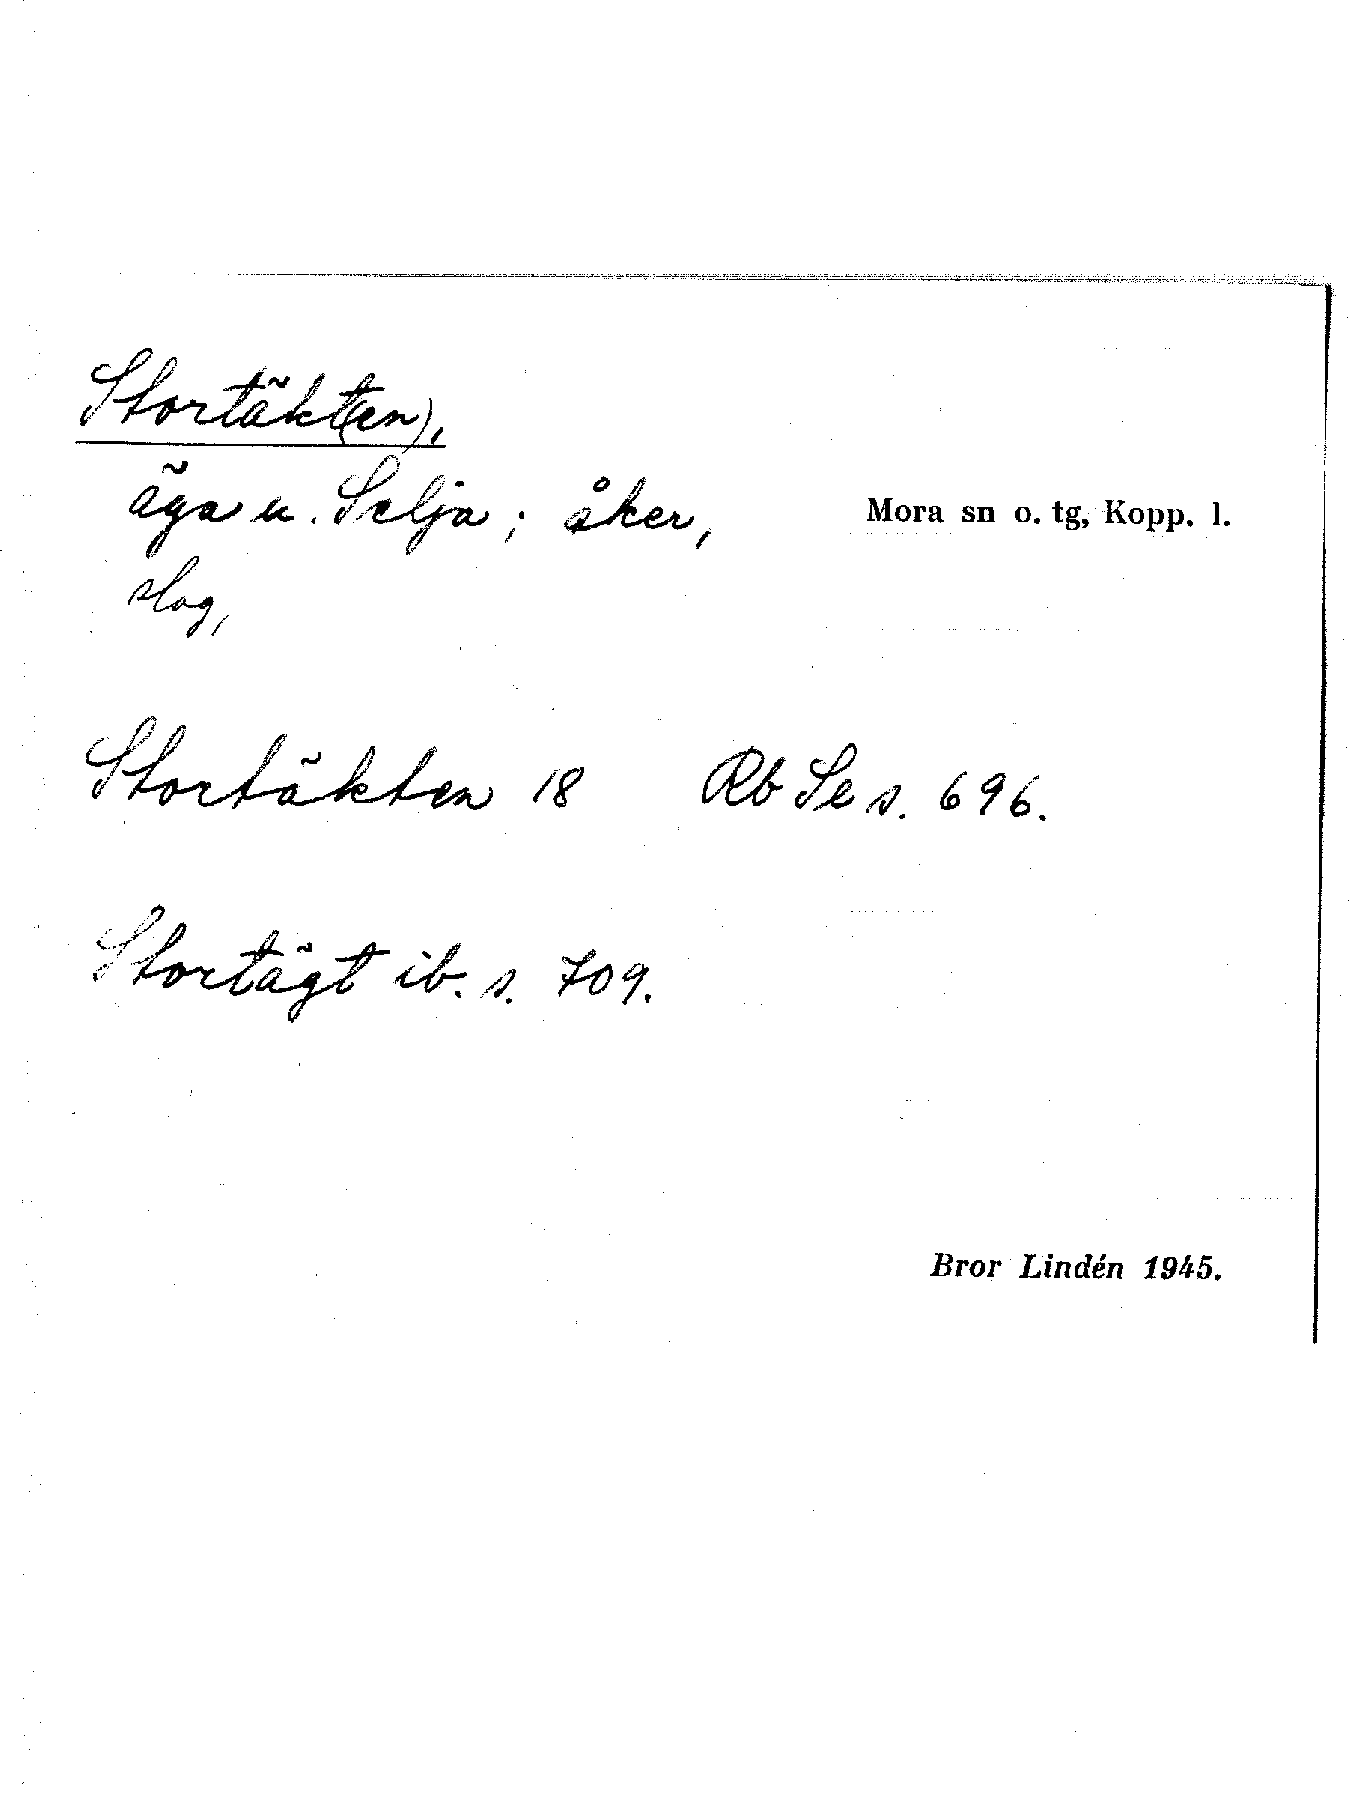 Stortäkt(en),
äga u. Selja; åker,
Mora sn o. tg, Kopp. l.
slog,
Stortäkten 18 Rb Se s. 696.
Stortägt ib. s. 709.
Bror Lindén 1945.